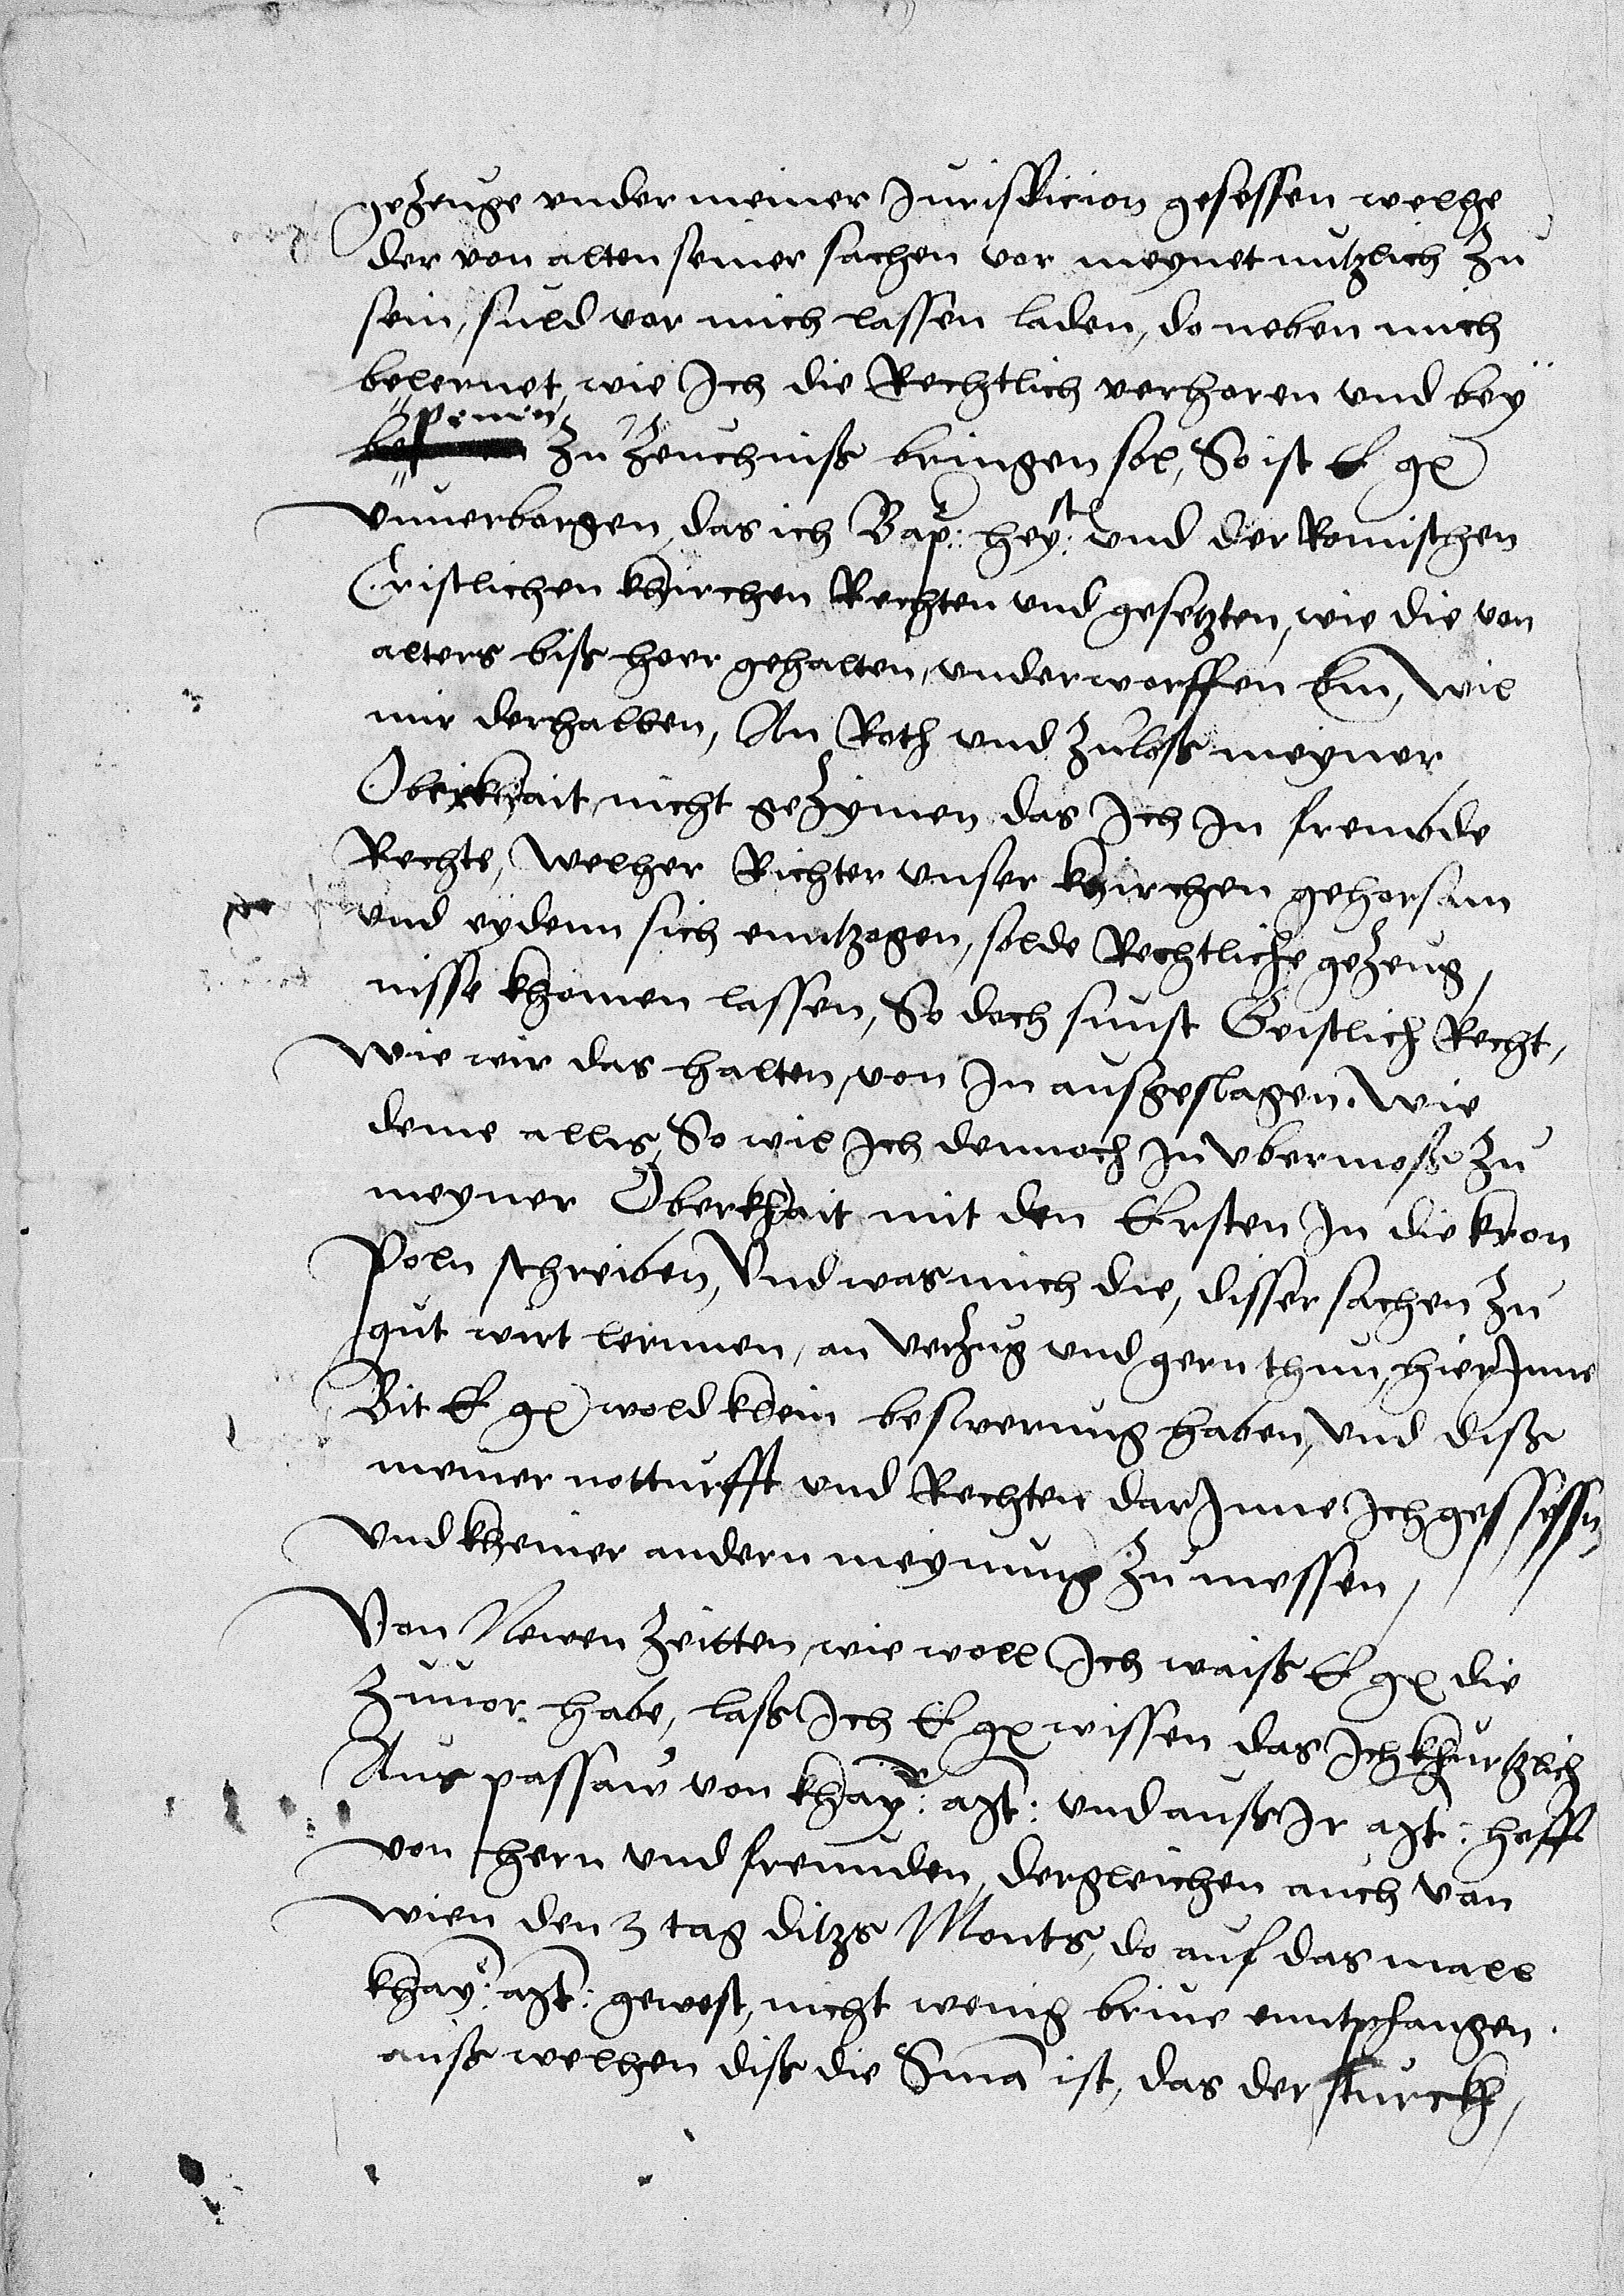 gezeuge vnder meiner Jurisdicion gesessen welhe
der von alten seiner sachen vor meynet nutzlich zu
sein, suld vor mich lassen laden, do neben mich
belernet, wie Ich die Rechtlich verhoren vnd bey
penen zu zeuchniß bringen sol, So ist E gn
vnuerborgen, das ich Bap: hey: vnd der Romischen
Cristlichen khirchen Rechten vnd gesetzten, wie die von
alters biß heer gehalten, vnderworffen bin, Wil
mir derhalben, An Roth vnd zuloß meyner
Oberkhait, nicht gezymen das Ich In frembde
Rechte, Welher Richter vnser khirchen gehorsam
vnd eydenn sich enntzogen, solde Rechtliche gezeug,
nisse khomen lassen, So doch sunst Geistlich Recht,
wie wir das halten, von In ausgeslagen. Wie
deme allis, So wil Ich dennoch In vbermoß zu
meyner Oberkhait mit den Ersten In die kron
Poln schreiben, Vnd was mich die, disser sachen zu
gut wirt lernnen, an verzug vnd gern thun, hierInne
Bit E gn wold khein beswerung haben, vnd diß
meiner notturfft vnd Rechten darInne Ich gesessen,
vnd kheiner andern meynung zu messen,
Von Newen Zeitten, wie woll Ich waiß E gn die
zuuor habe, laß Ich E gn wissen das Ich khurtzlich
Aus passaw von khay: Mt: vnd auß Ir Mt: hoff
von hern vnd freunden, dergleichen auch von
wien den 3 tag ditzs Monts, do auf das mall
khay: Mt: gewest, nicht wenig briue enntpfangen.
auß welhen diß die Suma ist, das der turckh,